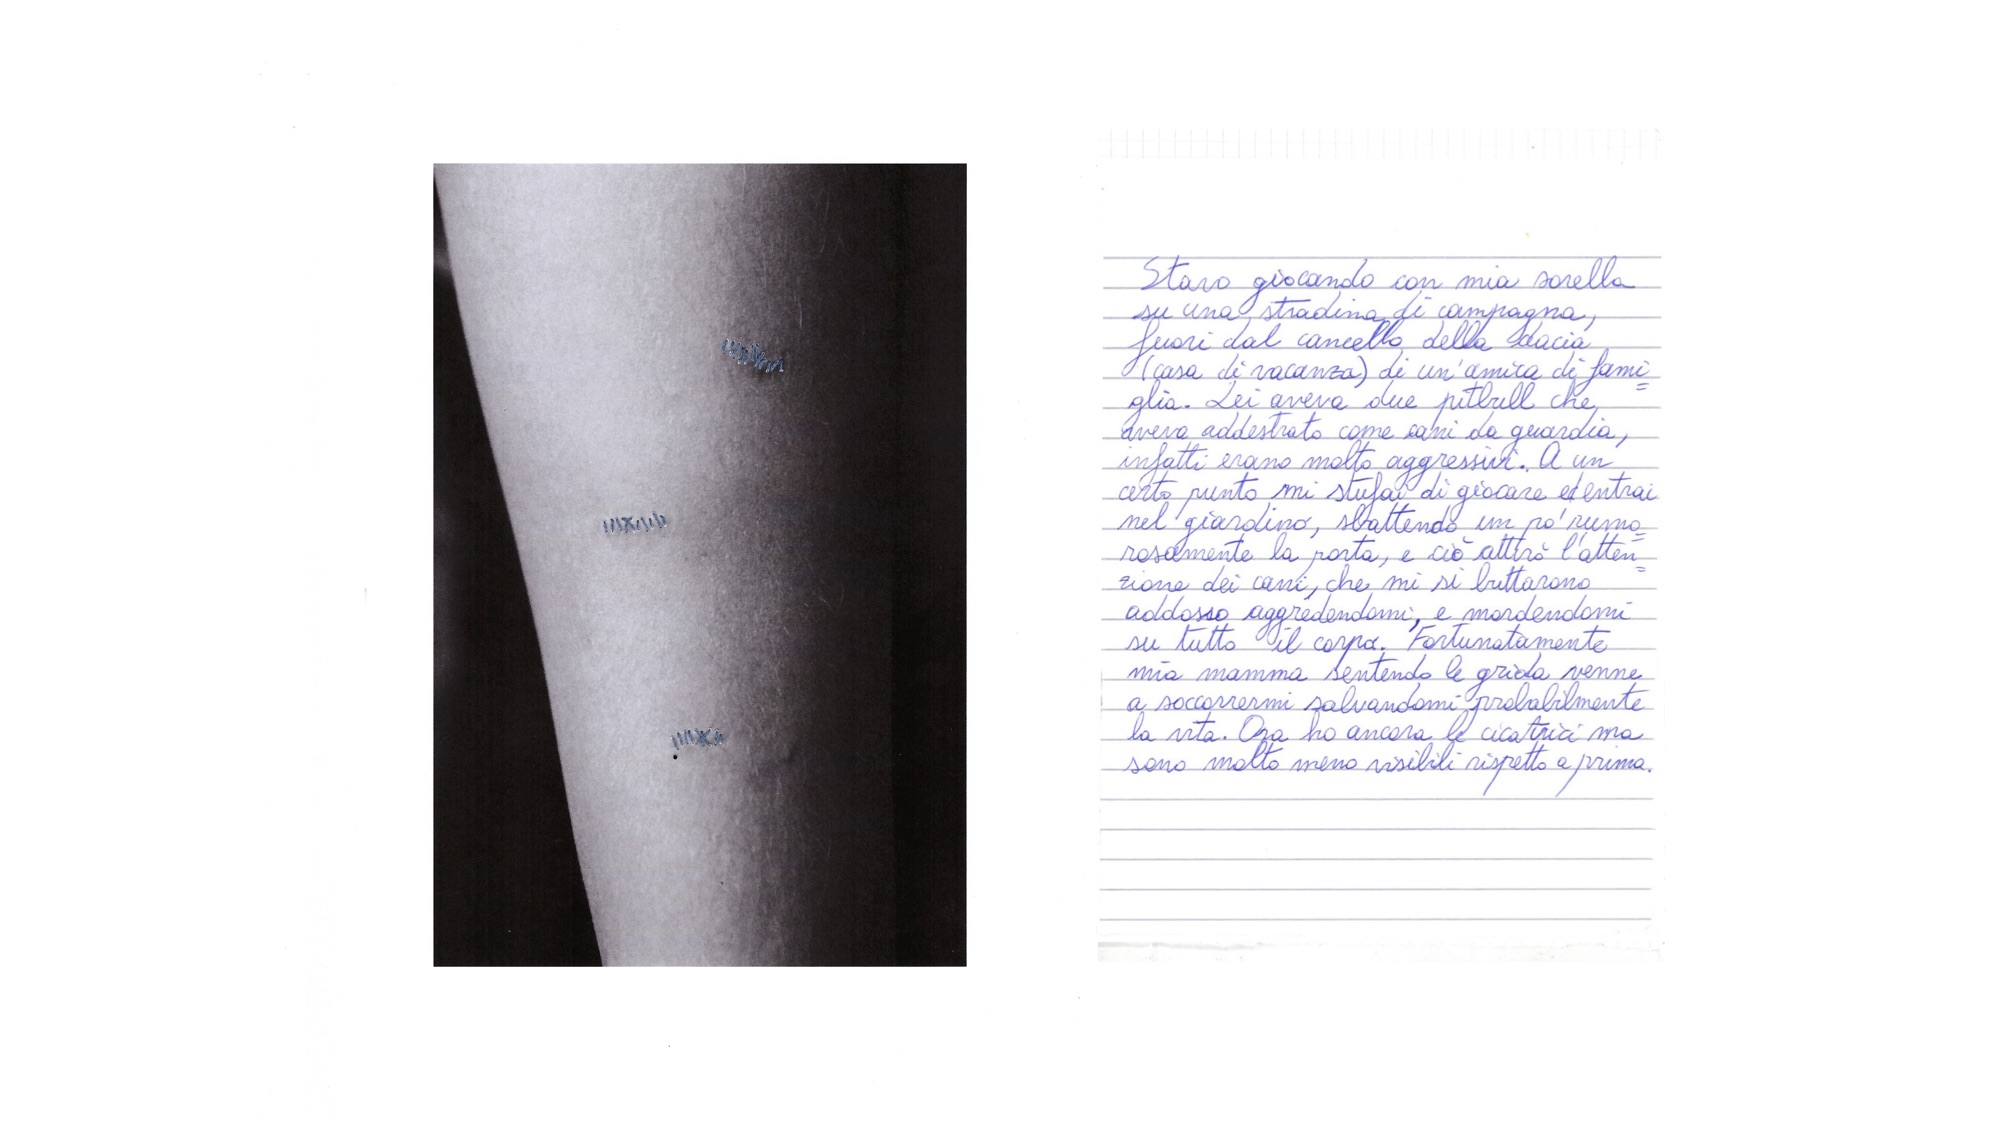 Stavo giocando con mia sorella
su una stradina di campagna,
fuori dal cancello della dacia
(casa di vacanza) di un'amica di fami=
glia. Lei aveva due pitbull che
aveva addestrato come cani da guardia,
infatti erano molto aggressivi. A un
certo punto mi stufai di giocare ed entrai
nel giardino, sbattendo un po' rumo=
rosamente la porta, e ciò attirò l'atten=
zione dei cani, che mi si buttarono
addosso aggredendomi, e mordendomi
su tutto il corpo. Fortunatamente
mia mamma sentendo le grida venne
a soccorrermi salvandomi probabilmente
la vita. Ora ho ancora le cicatrici ma
sono molto meno visibili rispetto a prima.